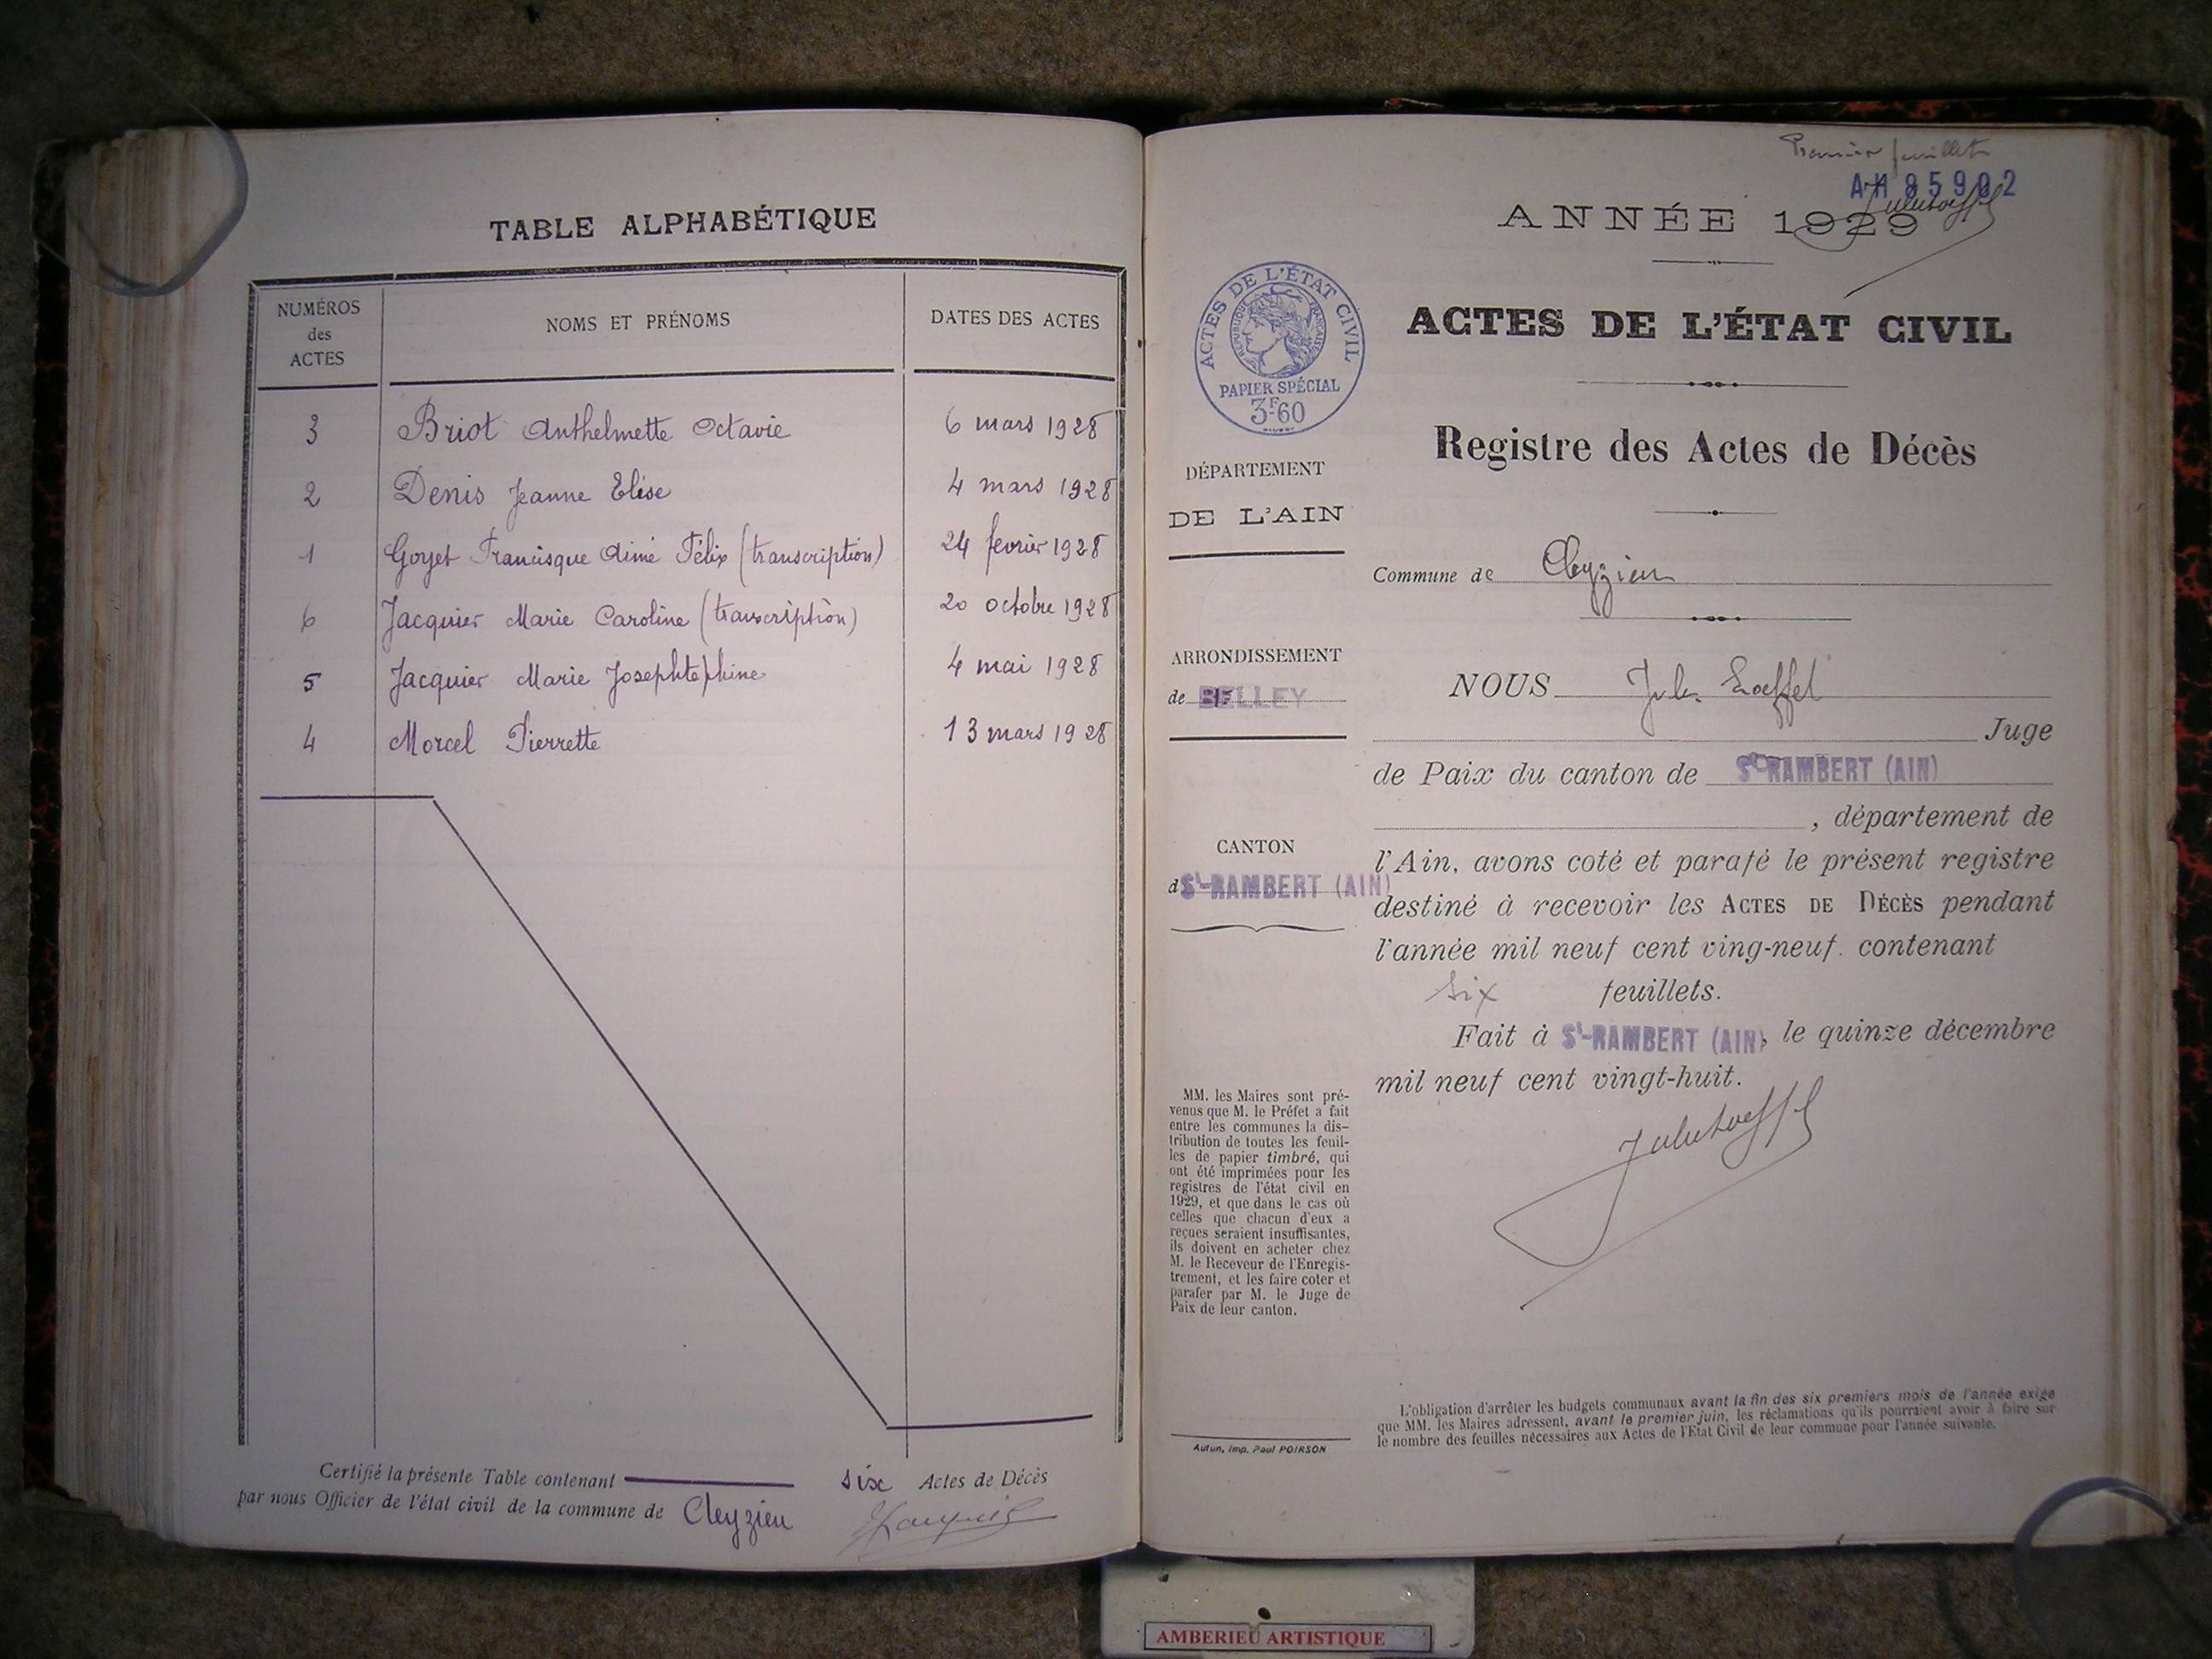 TABLE ALPHABÉTIQUE
NUMÉROS des ACTES NOMS ET PRÉNOMS DATES DES ACTES
3 Briot Anthelmette Octavie 6 mars 1928
2 Denis Jeanne Elise 4 mars 1928
1 Goyet Francisque Aimé Félix (transcription) 24 fevrier 1928
6 Jacquier Marie Caroline (transcription) 20 octobre 1928
5 Jacquier Marie Josephtephine 4 mai 1928
4 Morcel Pierrette 13 mars 1928
Certifié la présente Table contenant six Actes de Décès
par nous Officier de l'état civil de la commune de Cleyzieu
Premier feuillet
AH 85902
ANNÉE 1929
ACTES DE L'ÉTAT CIVIL
RÉPUBLIQUE FRANÇAISE
PAPIER SPÉCIAL
3F60
ACTES DE L'ÉTAT CIVIL
Registre des Actes de Décès
DÉPARTEMENT
DE L'AIN
ARRONDISSEMENT
de BELLEY
CANTON
de St-RAMBERT (AIN)
MM. les Maires sont pré-
venus que M. le Préfet a fait
entre les communes la dis-
tribution de toutes les feuil-
les de papier timbré, qui
ont été imprimées pour les
registres de l'état civil en
1929, et que dans le cas où
celles que chacun d'eux a
reçues seraient insuffisantes,
ils doivent en acheter chez
M. le Receveur de l'Enregis-
trement, et les faire coter et
parafer par M. le Juge de
Paix de leur canton.
Autun, Imp. Paul POIRSON
Commune de Cleyzieu
NOUS Jules Loeffel
Juge
de Paix du canton de St-RAMBERT (AIN)
, département de
l'Ain, avons coté et parafé le présent registre
destiné à recevoir les ACTES DE DÉCÈS pendant
l'année mil neuf cent ving-neuf. contenant
six feuillets.
Fait à St-RAMBERT (AIN), le quinze décembre
mil neuf cent vingt-huit.
L'obligation d'arrêter les budgets communaux avant la fin des six premiers mois de l'année exige
que MM. les Maires adressent, avant le premier juin, les réclamations qu'ils pourraient avoir à faire sur
le nombre des feuilles nécessaires aux Actes de l'Etat Civil de leur commune pour l'année suivante.
AMBERIEU ARTISTIQUE